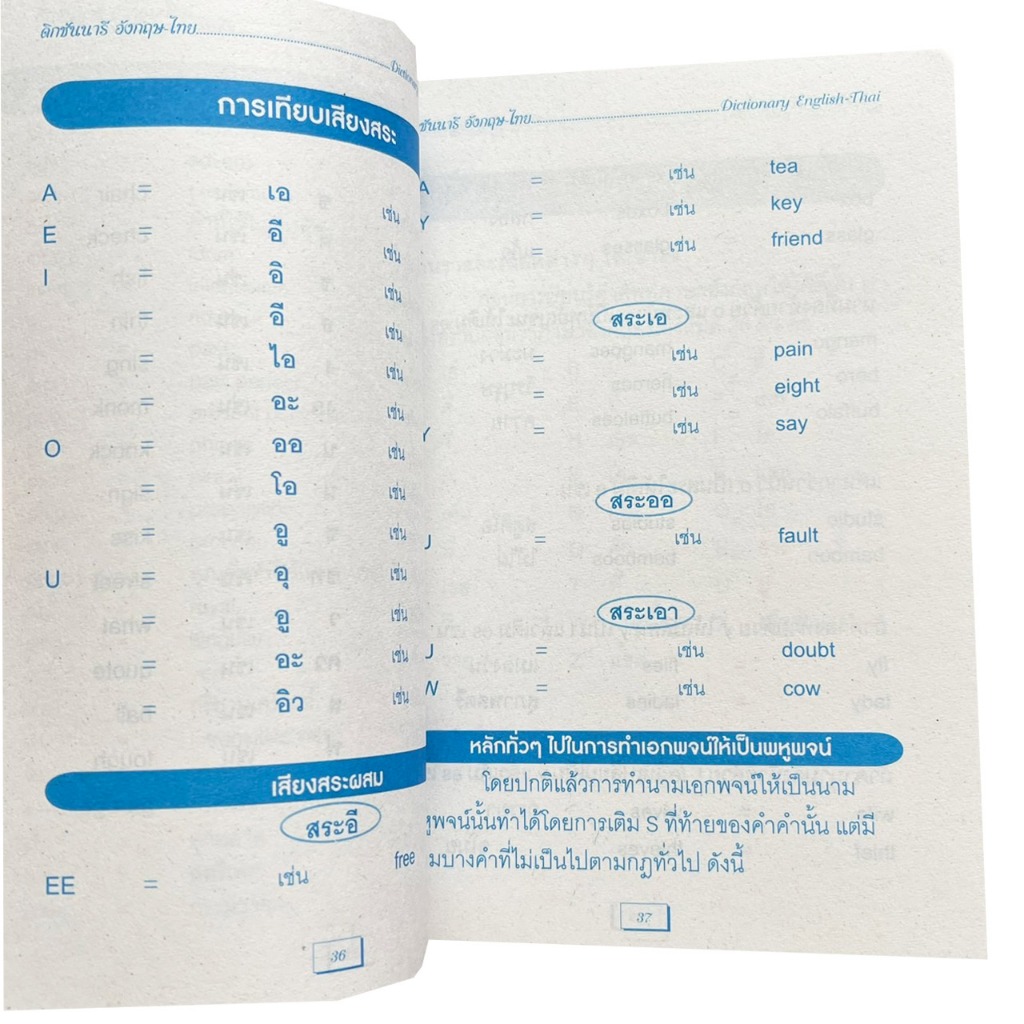 ดิกชันนารี อังกฤษ-ไทย
การเทียบเสียงสระ
A = เอ เช่น
E = อี เช่น
I = อิ เช่น
= อี เช่น
= ไอ เช่น
= อะ เช่น
O = ออ เช่น
= โอ เช่น
= อู เช่น
U = อุ เช่น
= อู เช่น
= อะ เช่น
= อิว เช่น
เสียงสระผสม
สระอี
EE = เช่น free
36
อังกฤษ-ไทย Dictionary English-Thai
A = เช่น tea
Y = เช่น key
= เช่น friend
สระเอ
= เช่น pain
= เช่น eight
Y = เช่น say
สระออ
U = เช่น fault
สระเอา
U = เช่น doubt
W = เช่น cow
หลักทั่วๆ ไปในการทำเอกพจน์ให้เป็นพหูพจน์
โดยปกติแล้วการทำนามเอกพจน์ให้เป็นนาม
หูพจน์นั้นทำได้โดยการเติม S ที่ท้ายของคำคำนั้น แต่มี
มบางคำที่ไม่เป็นไปตามกฎทั่วไป ดังนี้
37